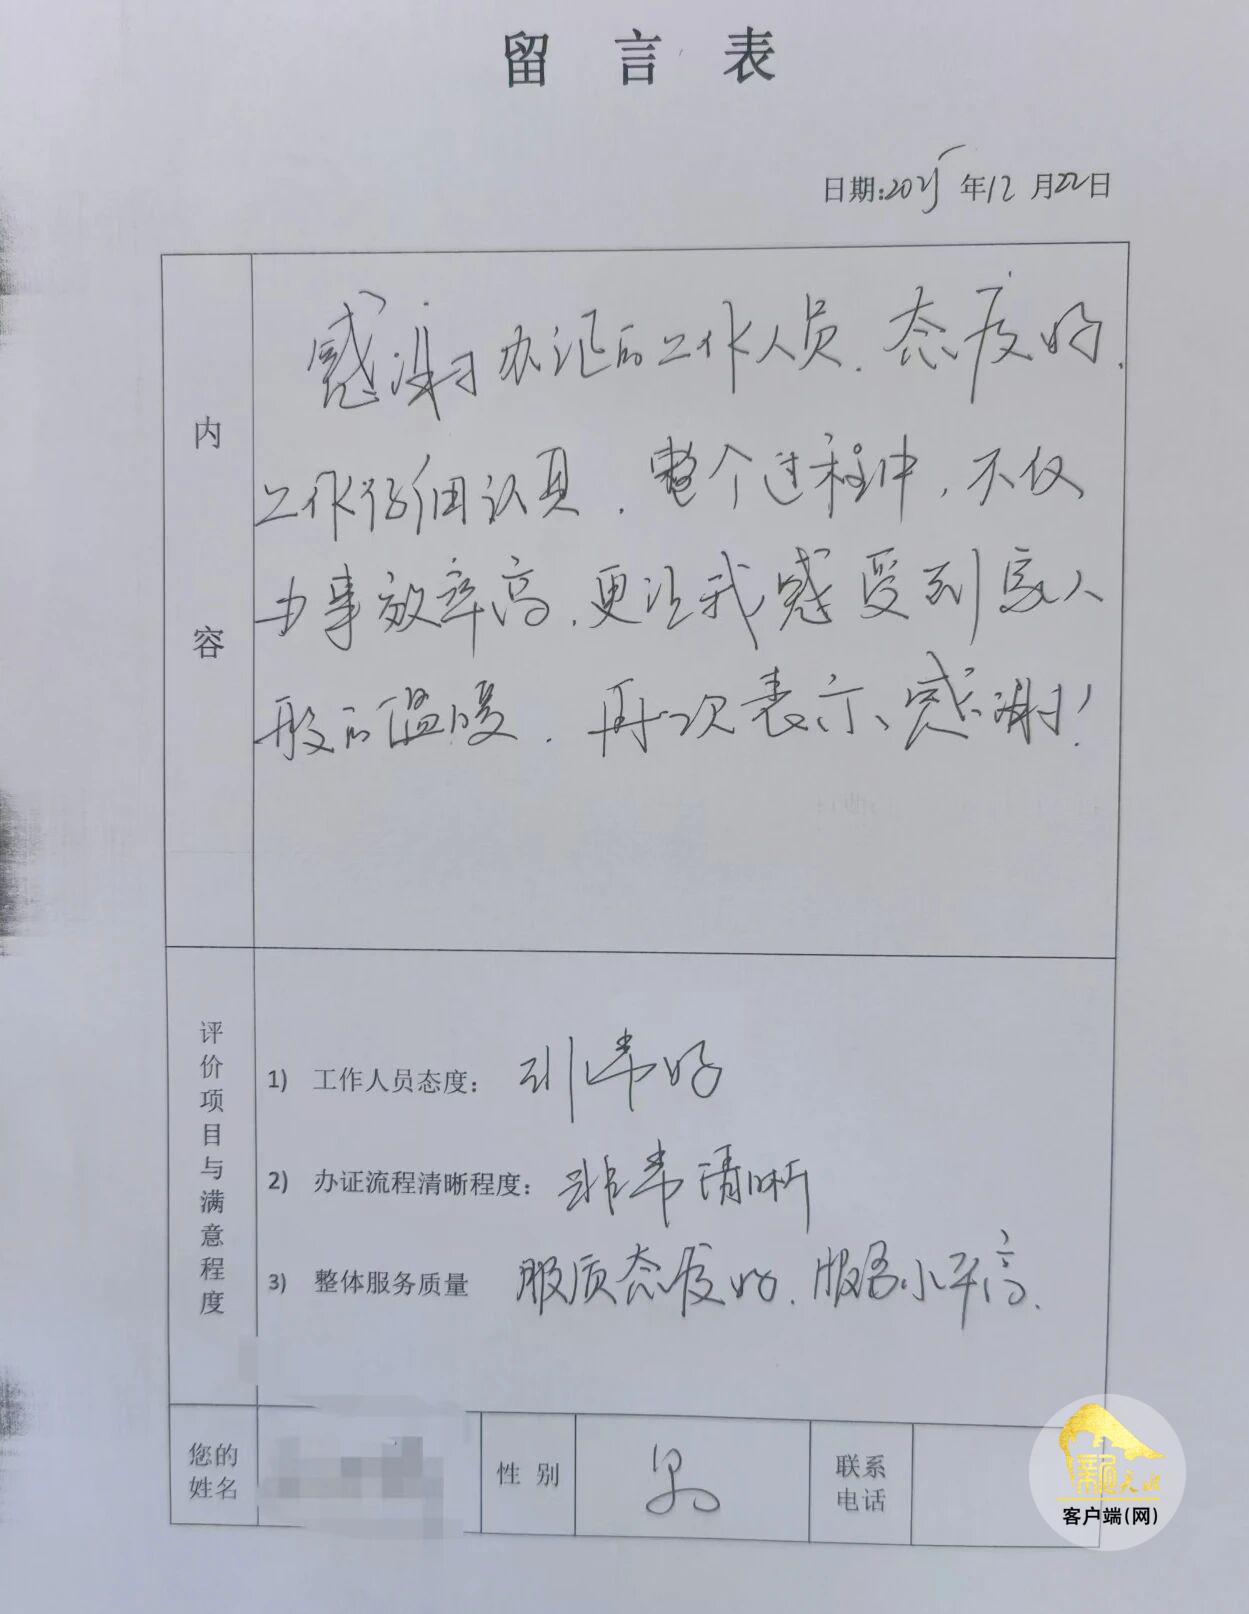 留言表
日期:2025年12月22日
内容
感谢办证的工作人员.态度好.
工作仔细认真.整个过程中,不仅
办事效率高.更让我感受到家人
般的温暖.再次表示感谢!
评价项目与满意程度
1) 工作人员态度: 非常好
2) 办证流程清晰程度: 非常清晰
3) 整体服务质量 服质态度好.服务水平高.
您的姓名
性别 男
联系电话
龍天水
客户端(网)